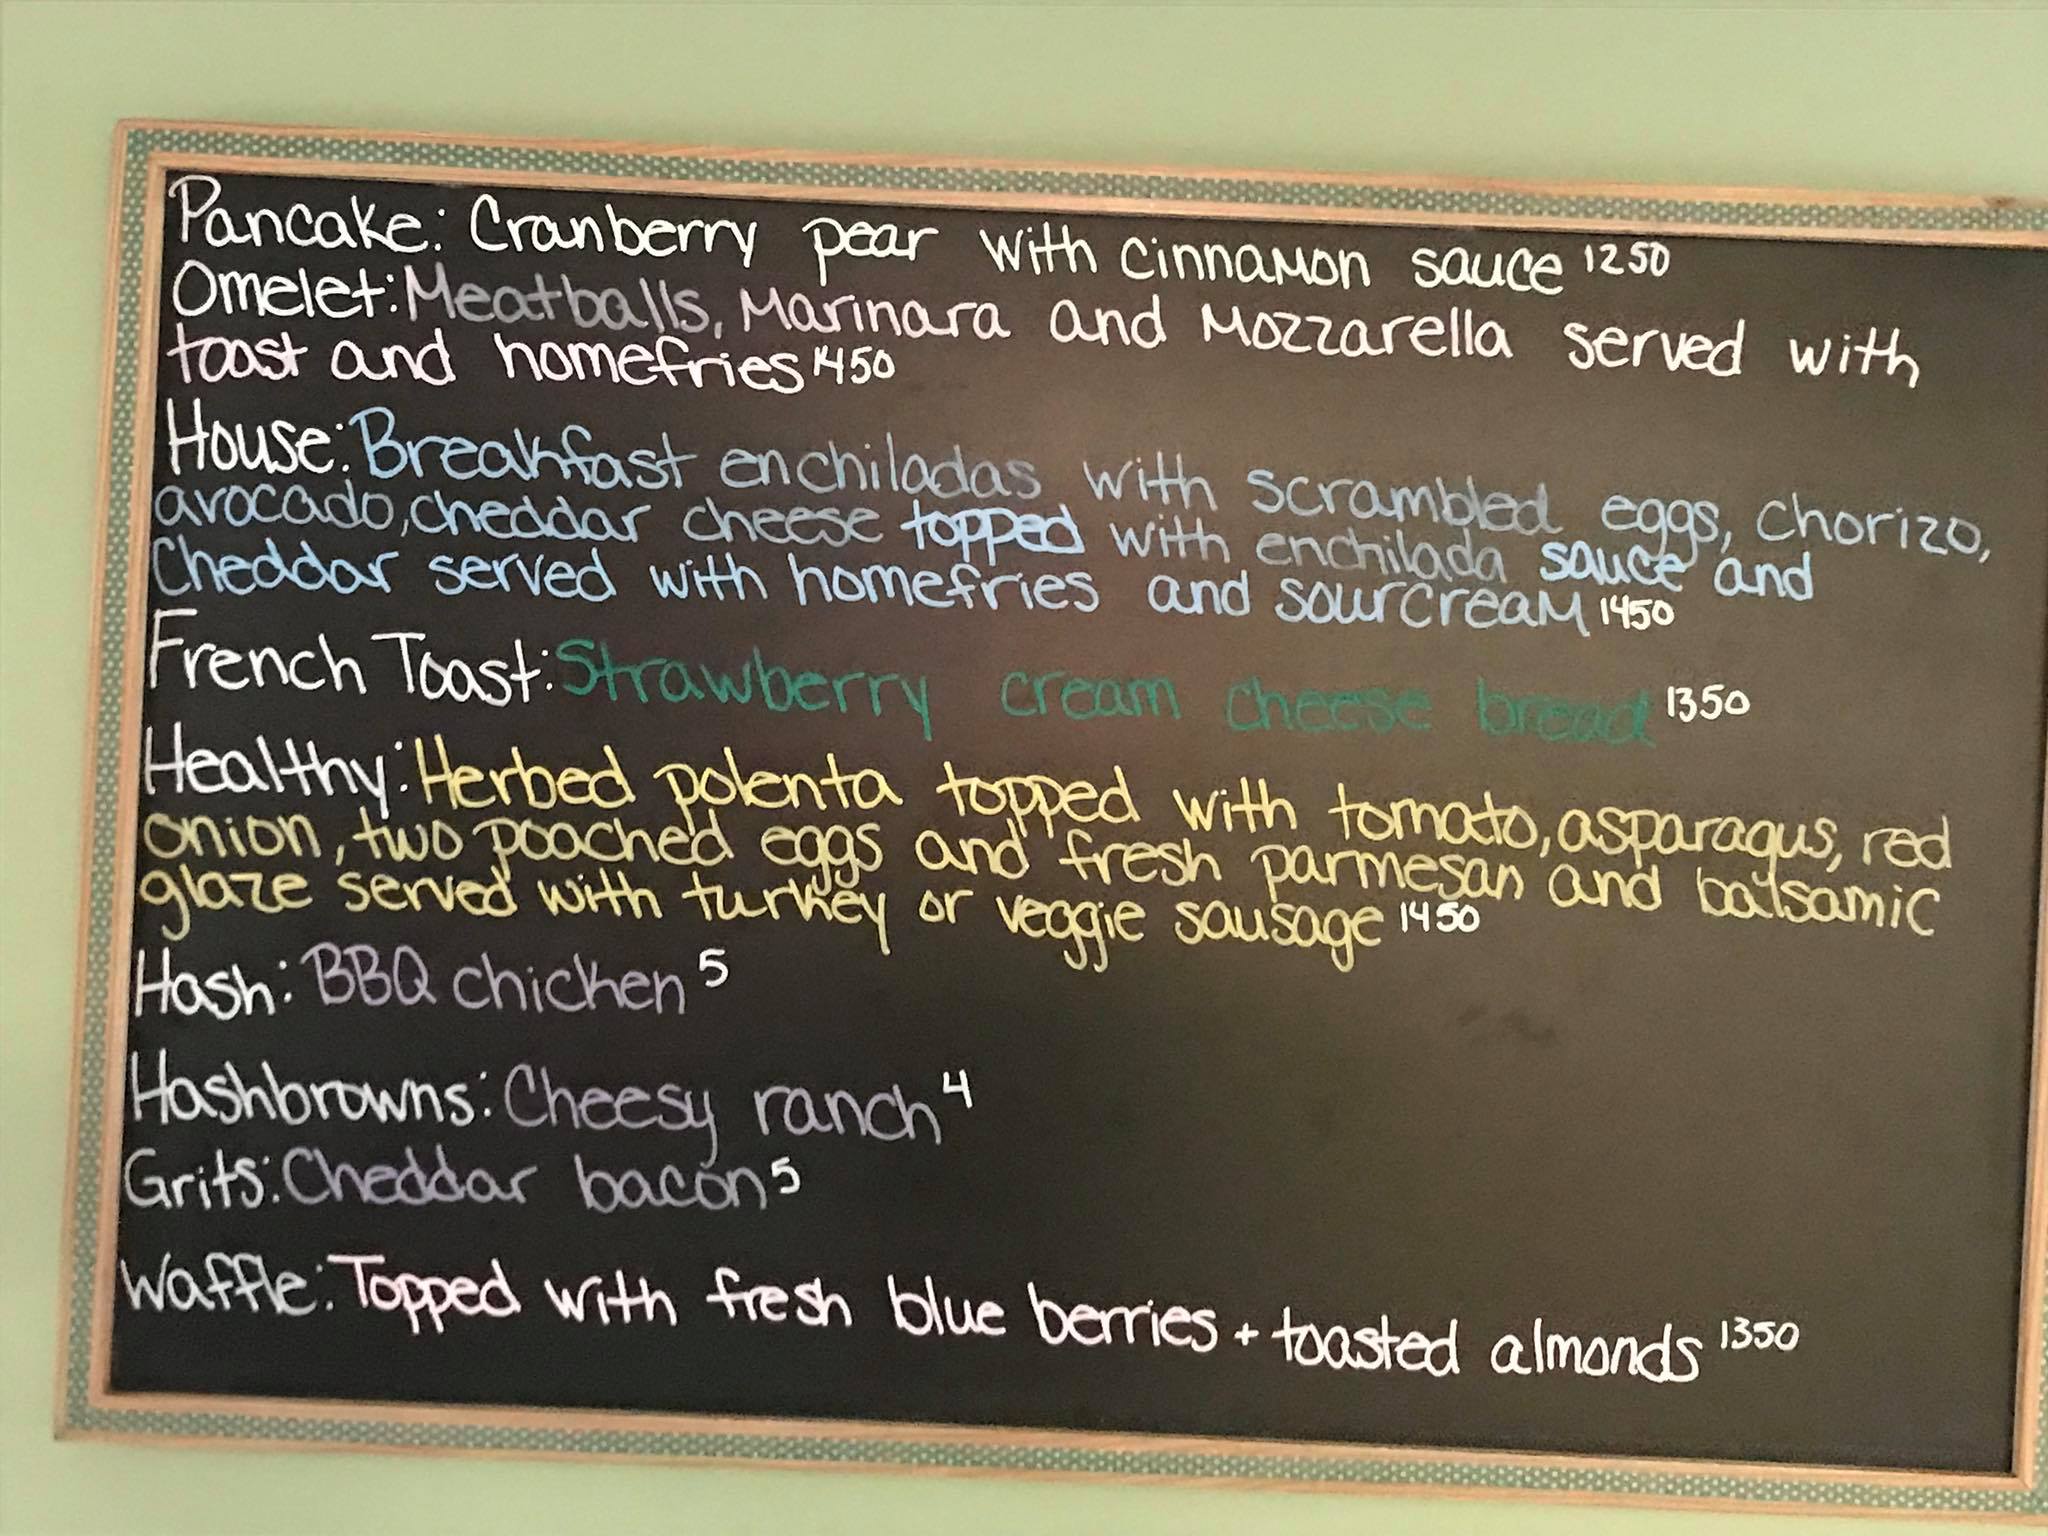 Pancake: Cranberry pear with cinnamon sauce 1250
Omelet: Meatballs, Marinara and Mozzarella served with
toast and homefries 1450
House: Breakfast enchiladas with scrambled eggs, chorizo,
avocado, cheddar cheese topped with enchilada sauce and
Cheddar served with homefries and sourcream 1450
French Toast: Strawberry cream cheese bread 1350
Healthy: Herbed polenta topped with tomato, asparagus, red
onion, two poached eggs and fresh parmesan and balsamic
glaze served with turkey or veggie sausage 1450
Hash: BBQ chicken 5
Hashbrowns: Cheesy ranch 4
Grits: Cheddar bacon 5
Waffle: Topped with fresh blue berries + toasted almonds 1350